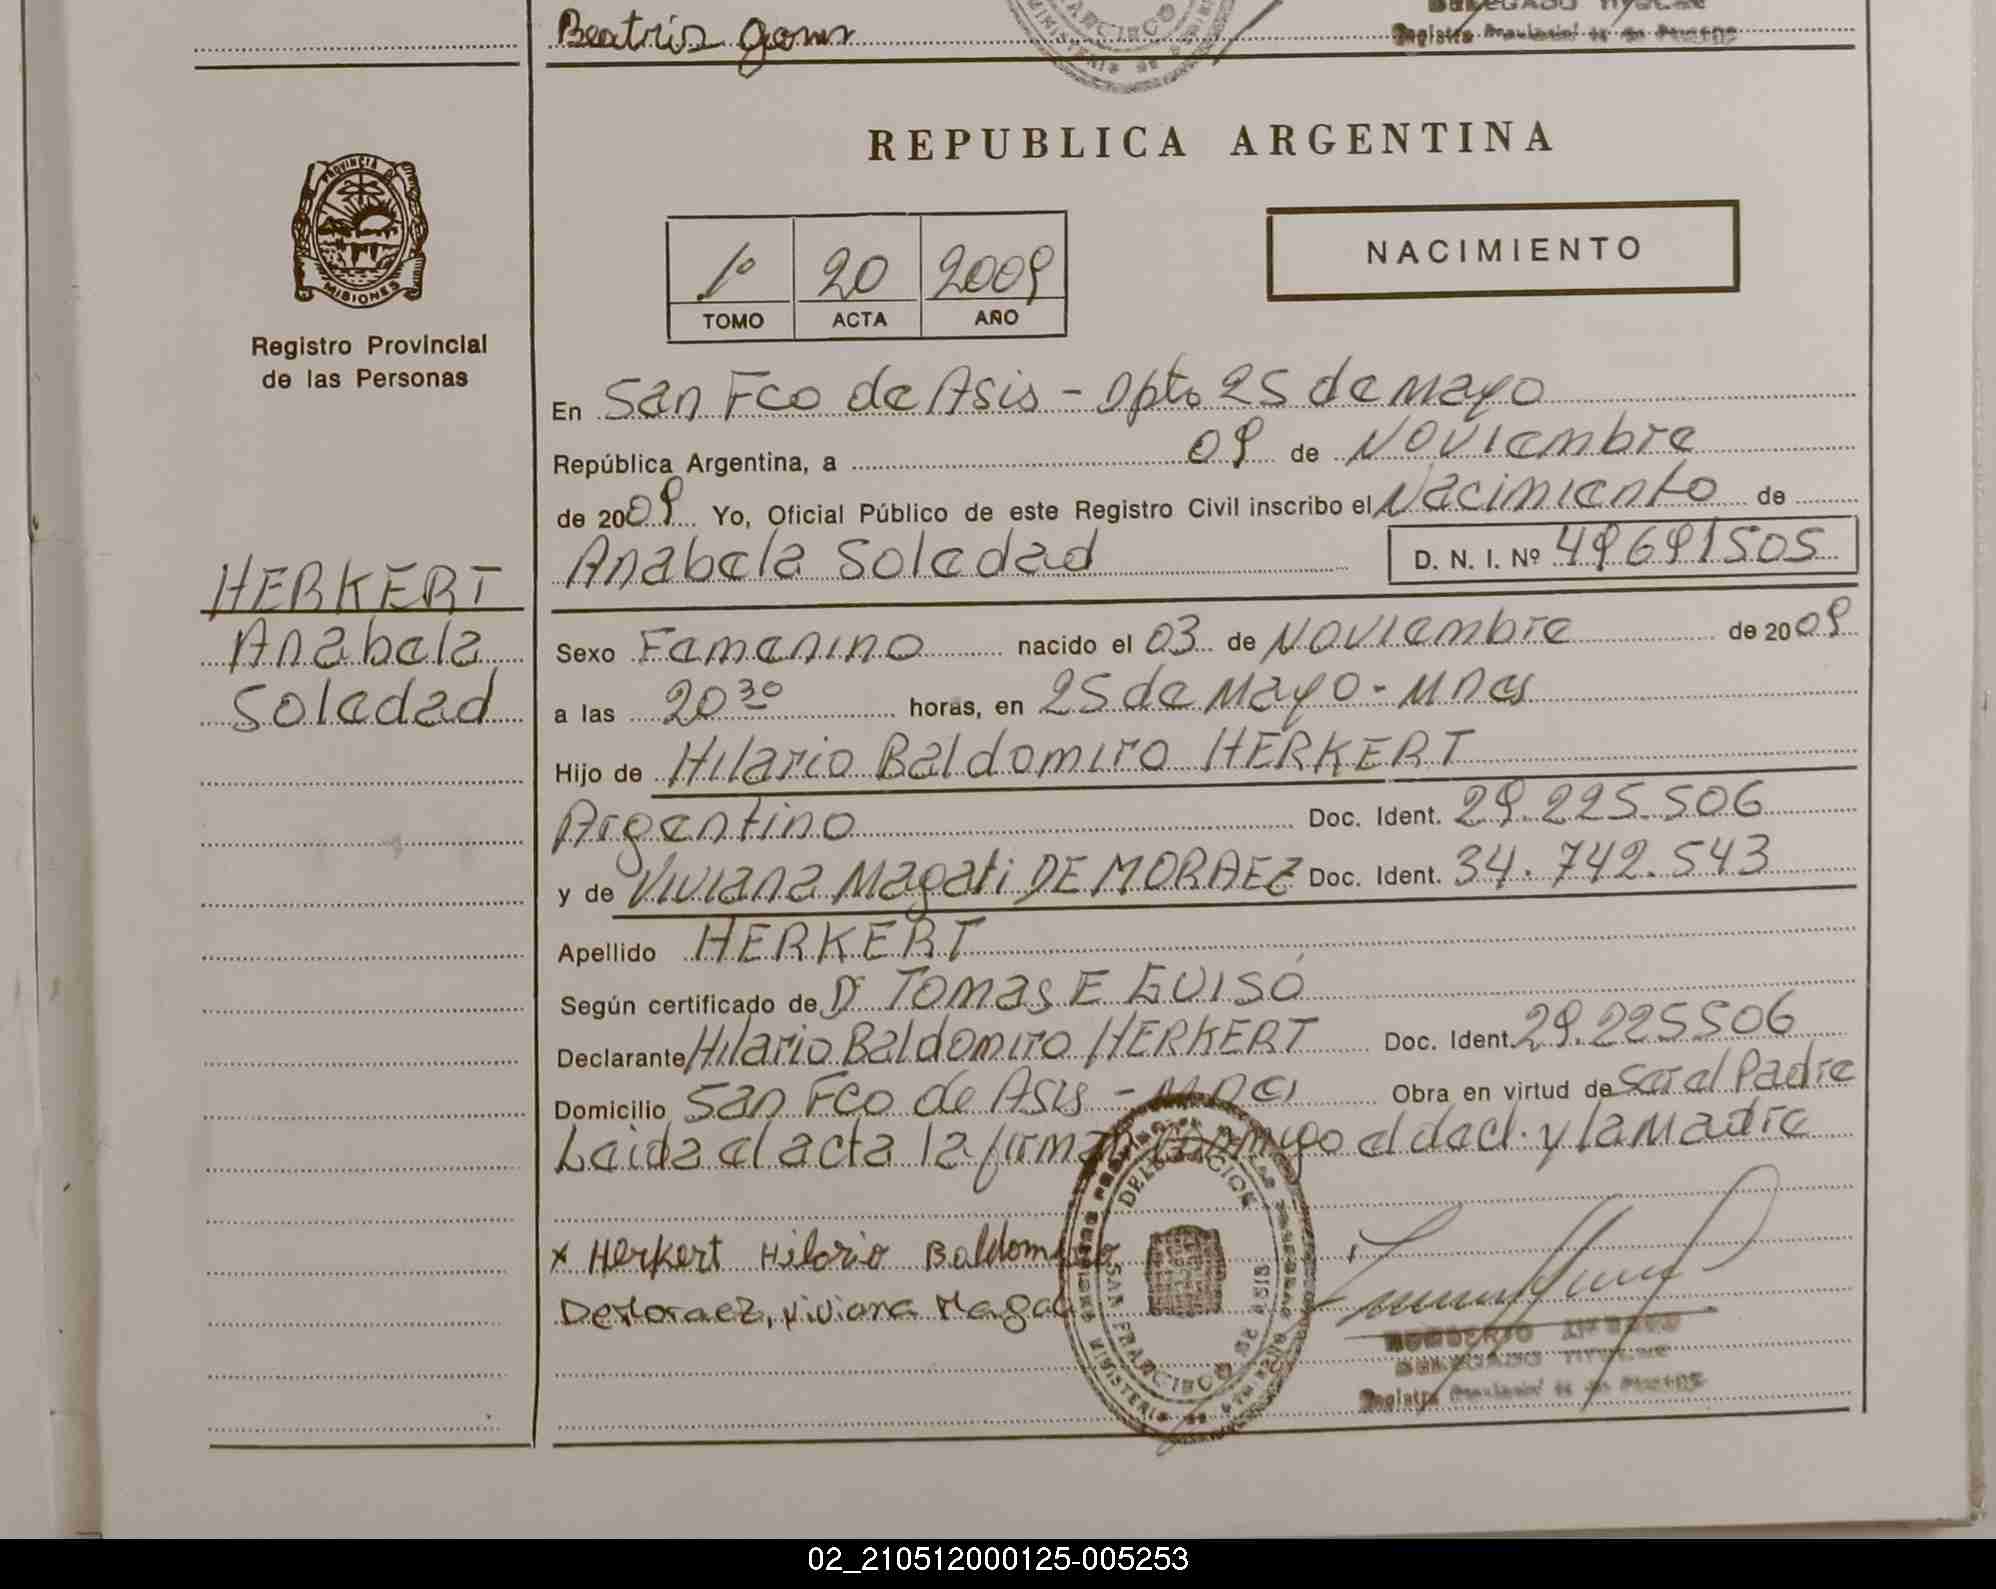 Beatris gomr
REPUBLICA ARGENTINA
PROVINCIA DE
MISIONES
Registro Provincial
de las Personas
1º 20 2009
TOMO ACTA AÑO
NACIMIENTO
En San Fco de Asis - Dpto 25 de Mayo
República Argentina, a 09 de Noviembre
de 2009 Yo, Oficial Público de este Registro Civil inscribo el Nacimiento de
Anabela Soledad D. N. I. Nº 49691505
HERKERT
Anabela
Soledad
Sexo Femenino nacido el 03 de Noviembre de 2009
a las 20 30 horas, en 25 de Mayo - Mnes
Hijo de Hilario Baldomiro HERKERT
Argentino Doc. Ident. 29.225.506
y de Viviana Magali DE MORAEZ Doc. Ident. 34.742.543
Apellido HERKERT
Según certificado de Dr TOMAS E GUISÓ
Declarante Hilario Baldomiro HERKERT Doc. Ident. 29.225506
Domicilio San Fco de Asis - Mnes Obra en virtud de Ser el Padre
Leida el acta la firman conmigo el decl. y la Madre
x Herkert Hilario Baldomiro
DeMoraez, Viviana Magali
DELEGACION
SAN FRANCISCO DE ASIS
DELEGADO TITULAR
Registro Provincial de las Personas
02_210512000125-005253